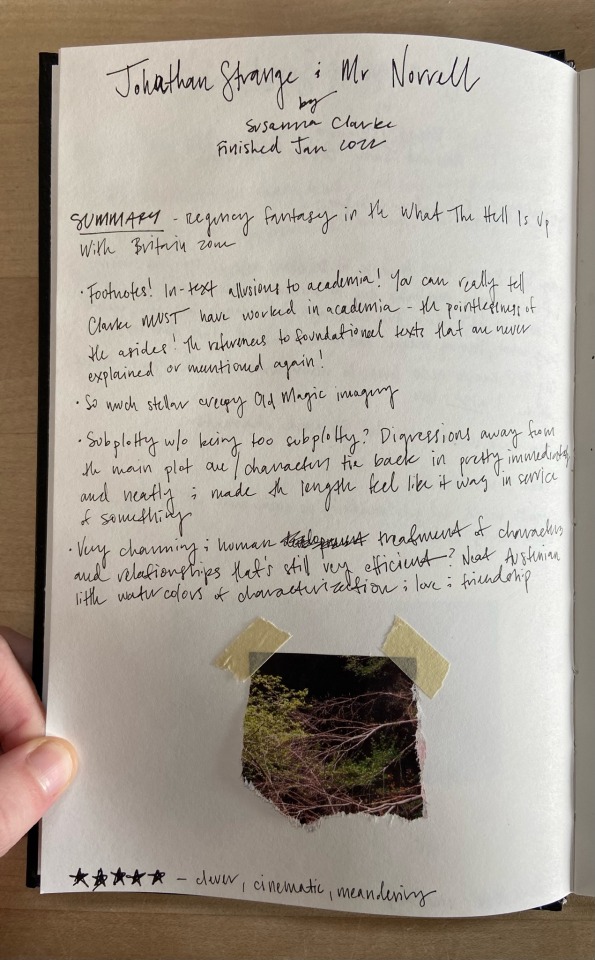 Johathan Strange & Mr Norrell
by
Susanna Clarke
Finished Jan 2022
SUMMARY - Regency fantasy in the What The Hell Is Up
With Britain zone
• Footnotes! In-text allusions to academia! You can really tell
Clarke MUST have worked in academia - the pointlessness of
the asides! The references to foundational texts that are never
explained or mentioned again!
• So much stellar creepy Old Magic imagery
• Subplotty w/o being too subplotty? Digressions away from
the main plot arc/characters tie back in pretty immediately
and neatly & made the length feel like it was in service
of something
• Very charming & human treatment of characters
and relationships that's still very efficient? Neat Austenian
little watercolors of characterization & love & friendship
★★★★★ - clever, cinematic, meandering